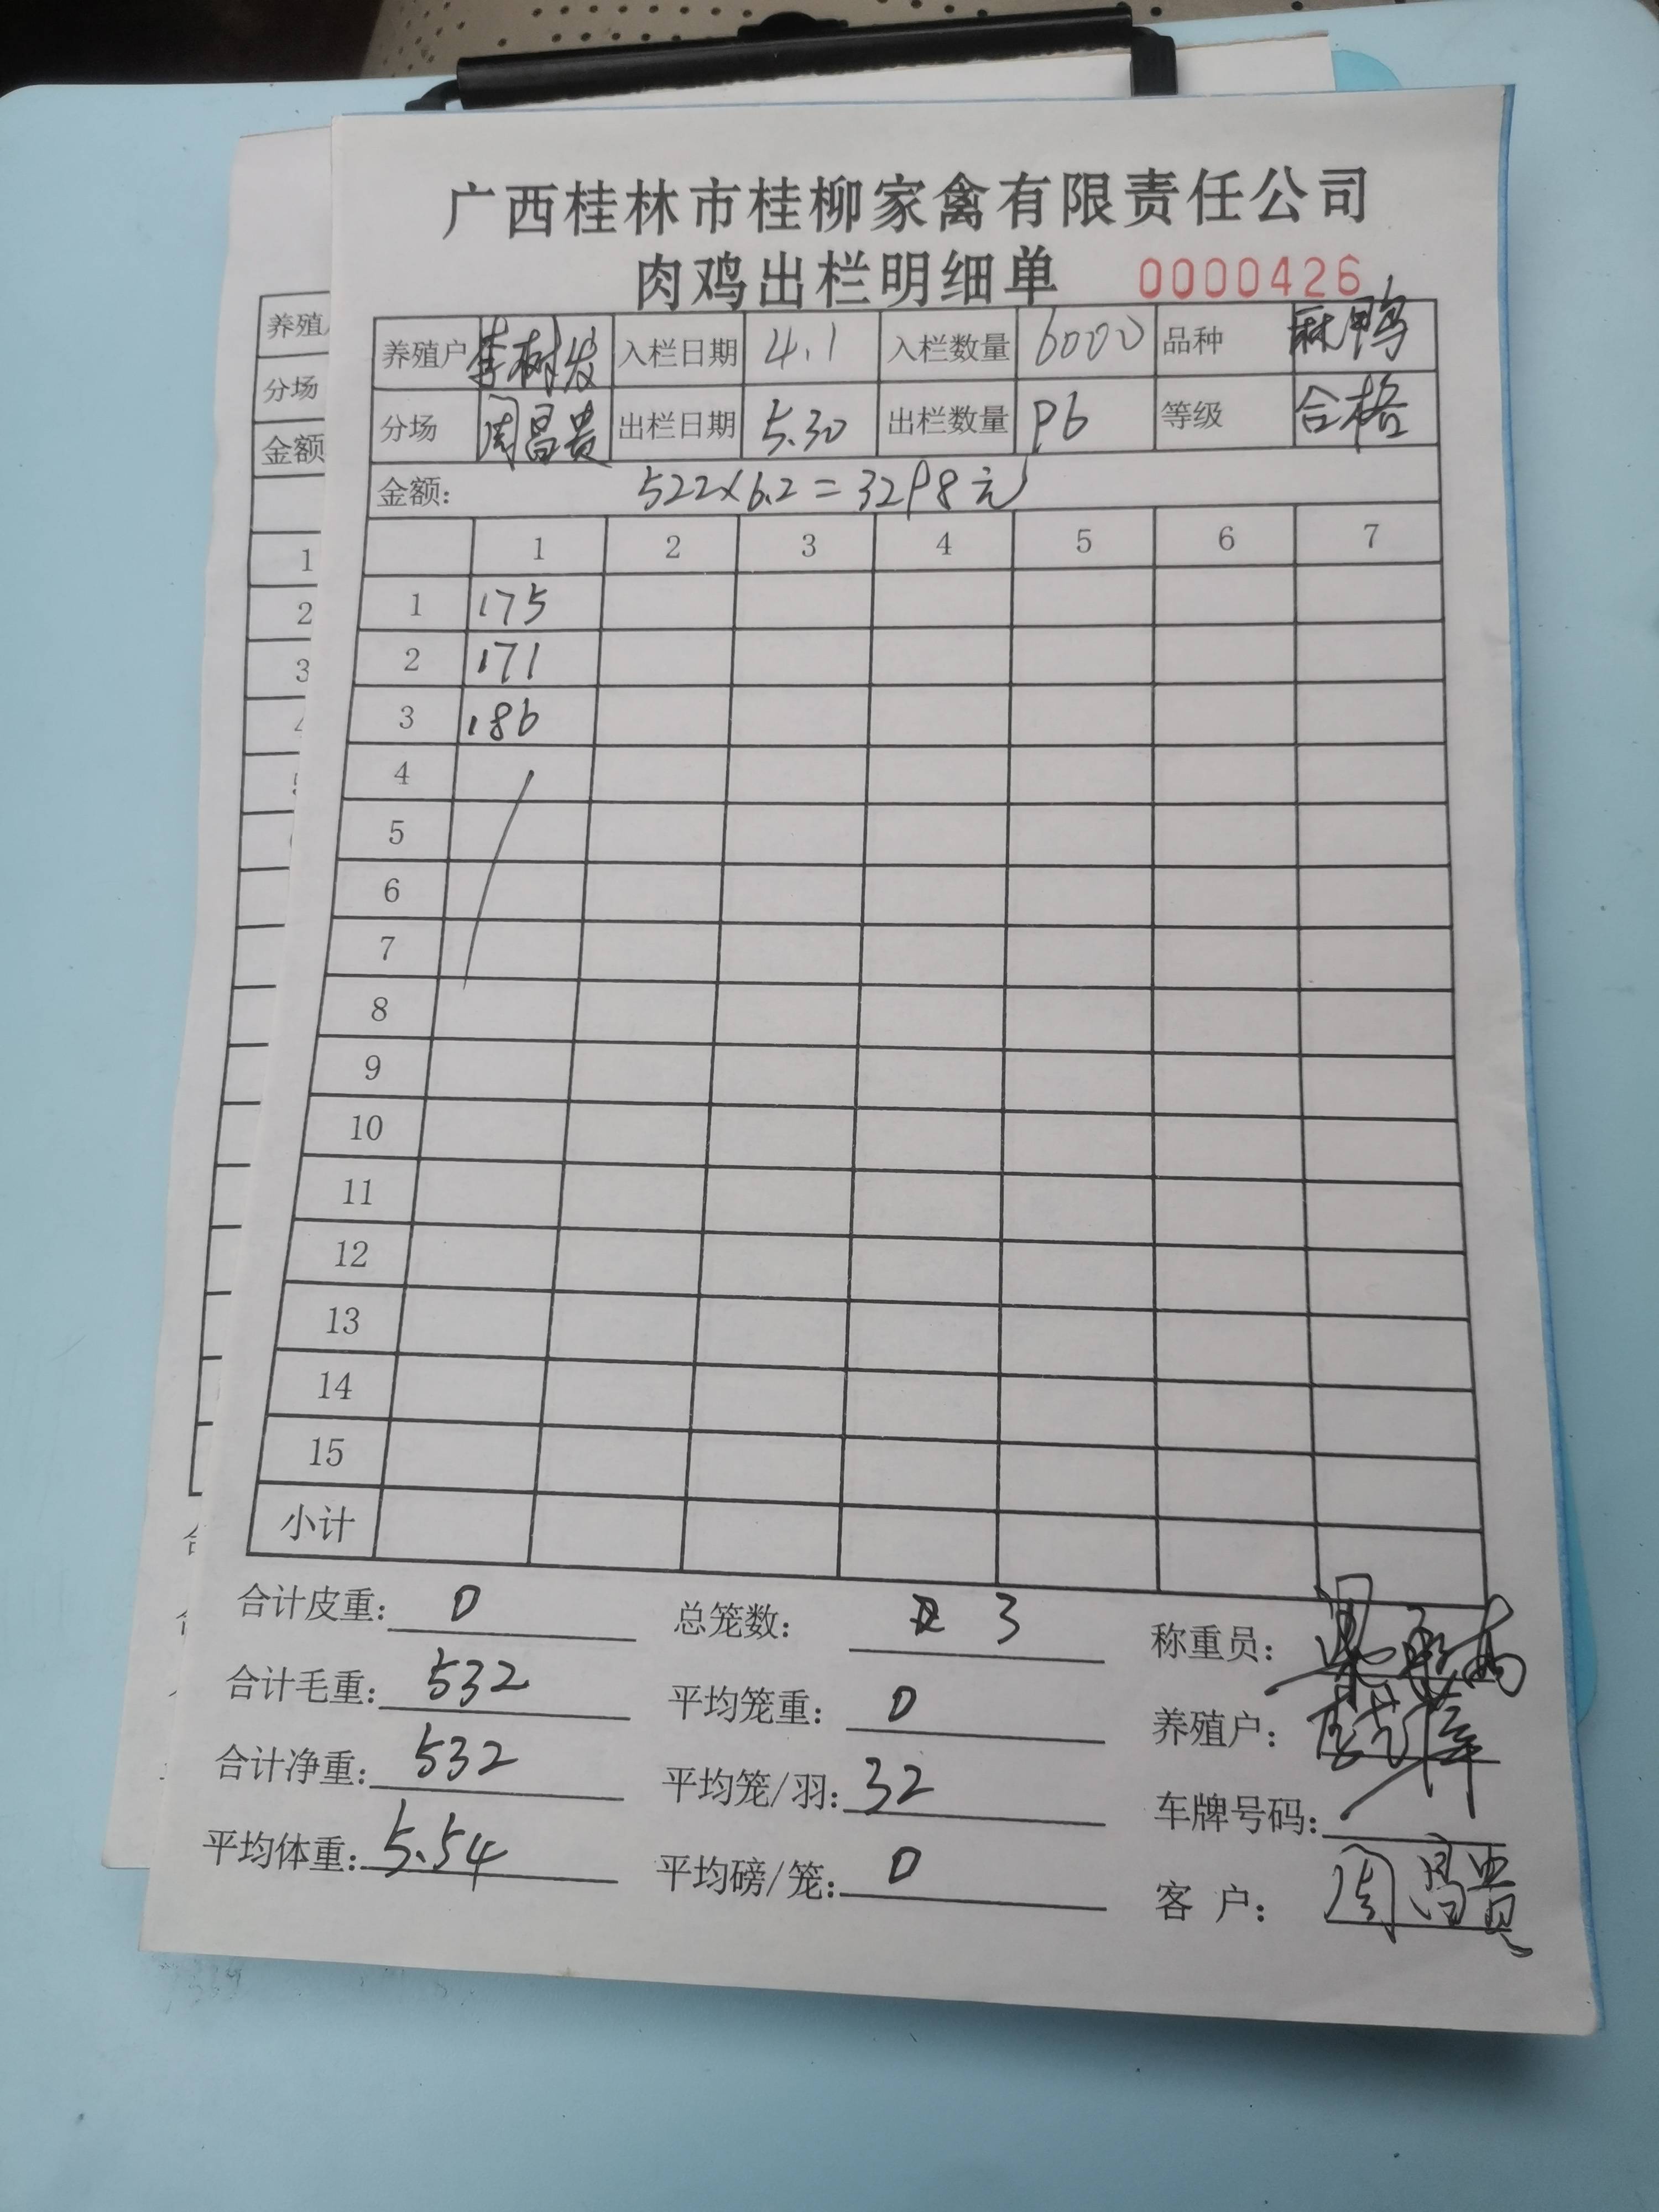 广西桂林市桂柳家禽有限责任公司
肉鸡出栏明细单 0000426
养殖户 李树发 入栏日期 4.1 入栏数量 6000 品种 麻鸭
分场 周昌贵 出栏日期 5.30 出栏数量 96 等级 合格
金额: 522×6.2=3298元
1 2 3 4 5 6 7
1 175
2 171
3 186
4
5
6
7
8
9
10
11
12
13
14
15
小计
合计皮重: 0 总笼数: 3 称重员:
合计毛重: 532 平均笼重: 0 养殖户:
合计净重: 532 平均笼/羽: 32 车牌号码:
平均体重: 5.54 平均磅/笼: 0 客户: 周昌贵
养殖
分场
金额
1
2
3